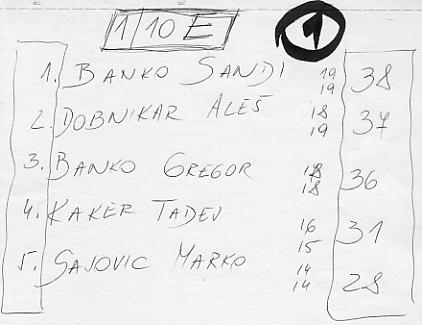 1 10 E 1
1. BANKO SANDI 19 19 38
2. DOBNIKAR ALEŠ 18 19 37
3. BANKO GREGOR 18 18 36
4. KAKER TADEJ 16 15 31
5. GAJOVIC MARKO 14 14 28